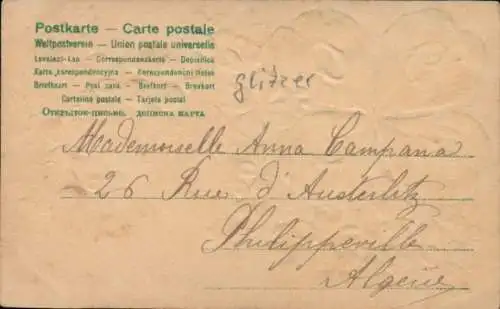 Postkarte – Carte postale
Weltpostverein – Union postale universelle
Levelezi-Lap – Correspondenzkarte – Dopisnica
Karta korespondencyjna – Korespondenční lístek
Briefkaart – Post card – Brefkort – Brevkort
Cartolina postale – Tarjeta postal
Открытое письмо. дописна карта
glitzer
Mademoiselle Anna Campana
26 Rue d'Austerlitz
Philippeville
Algérie